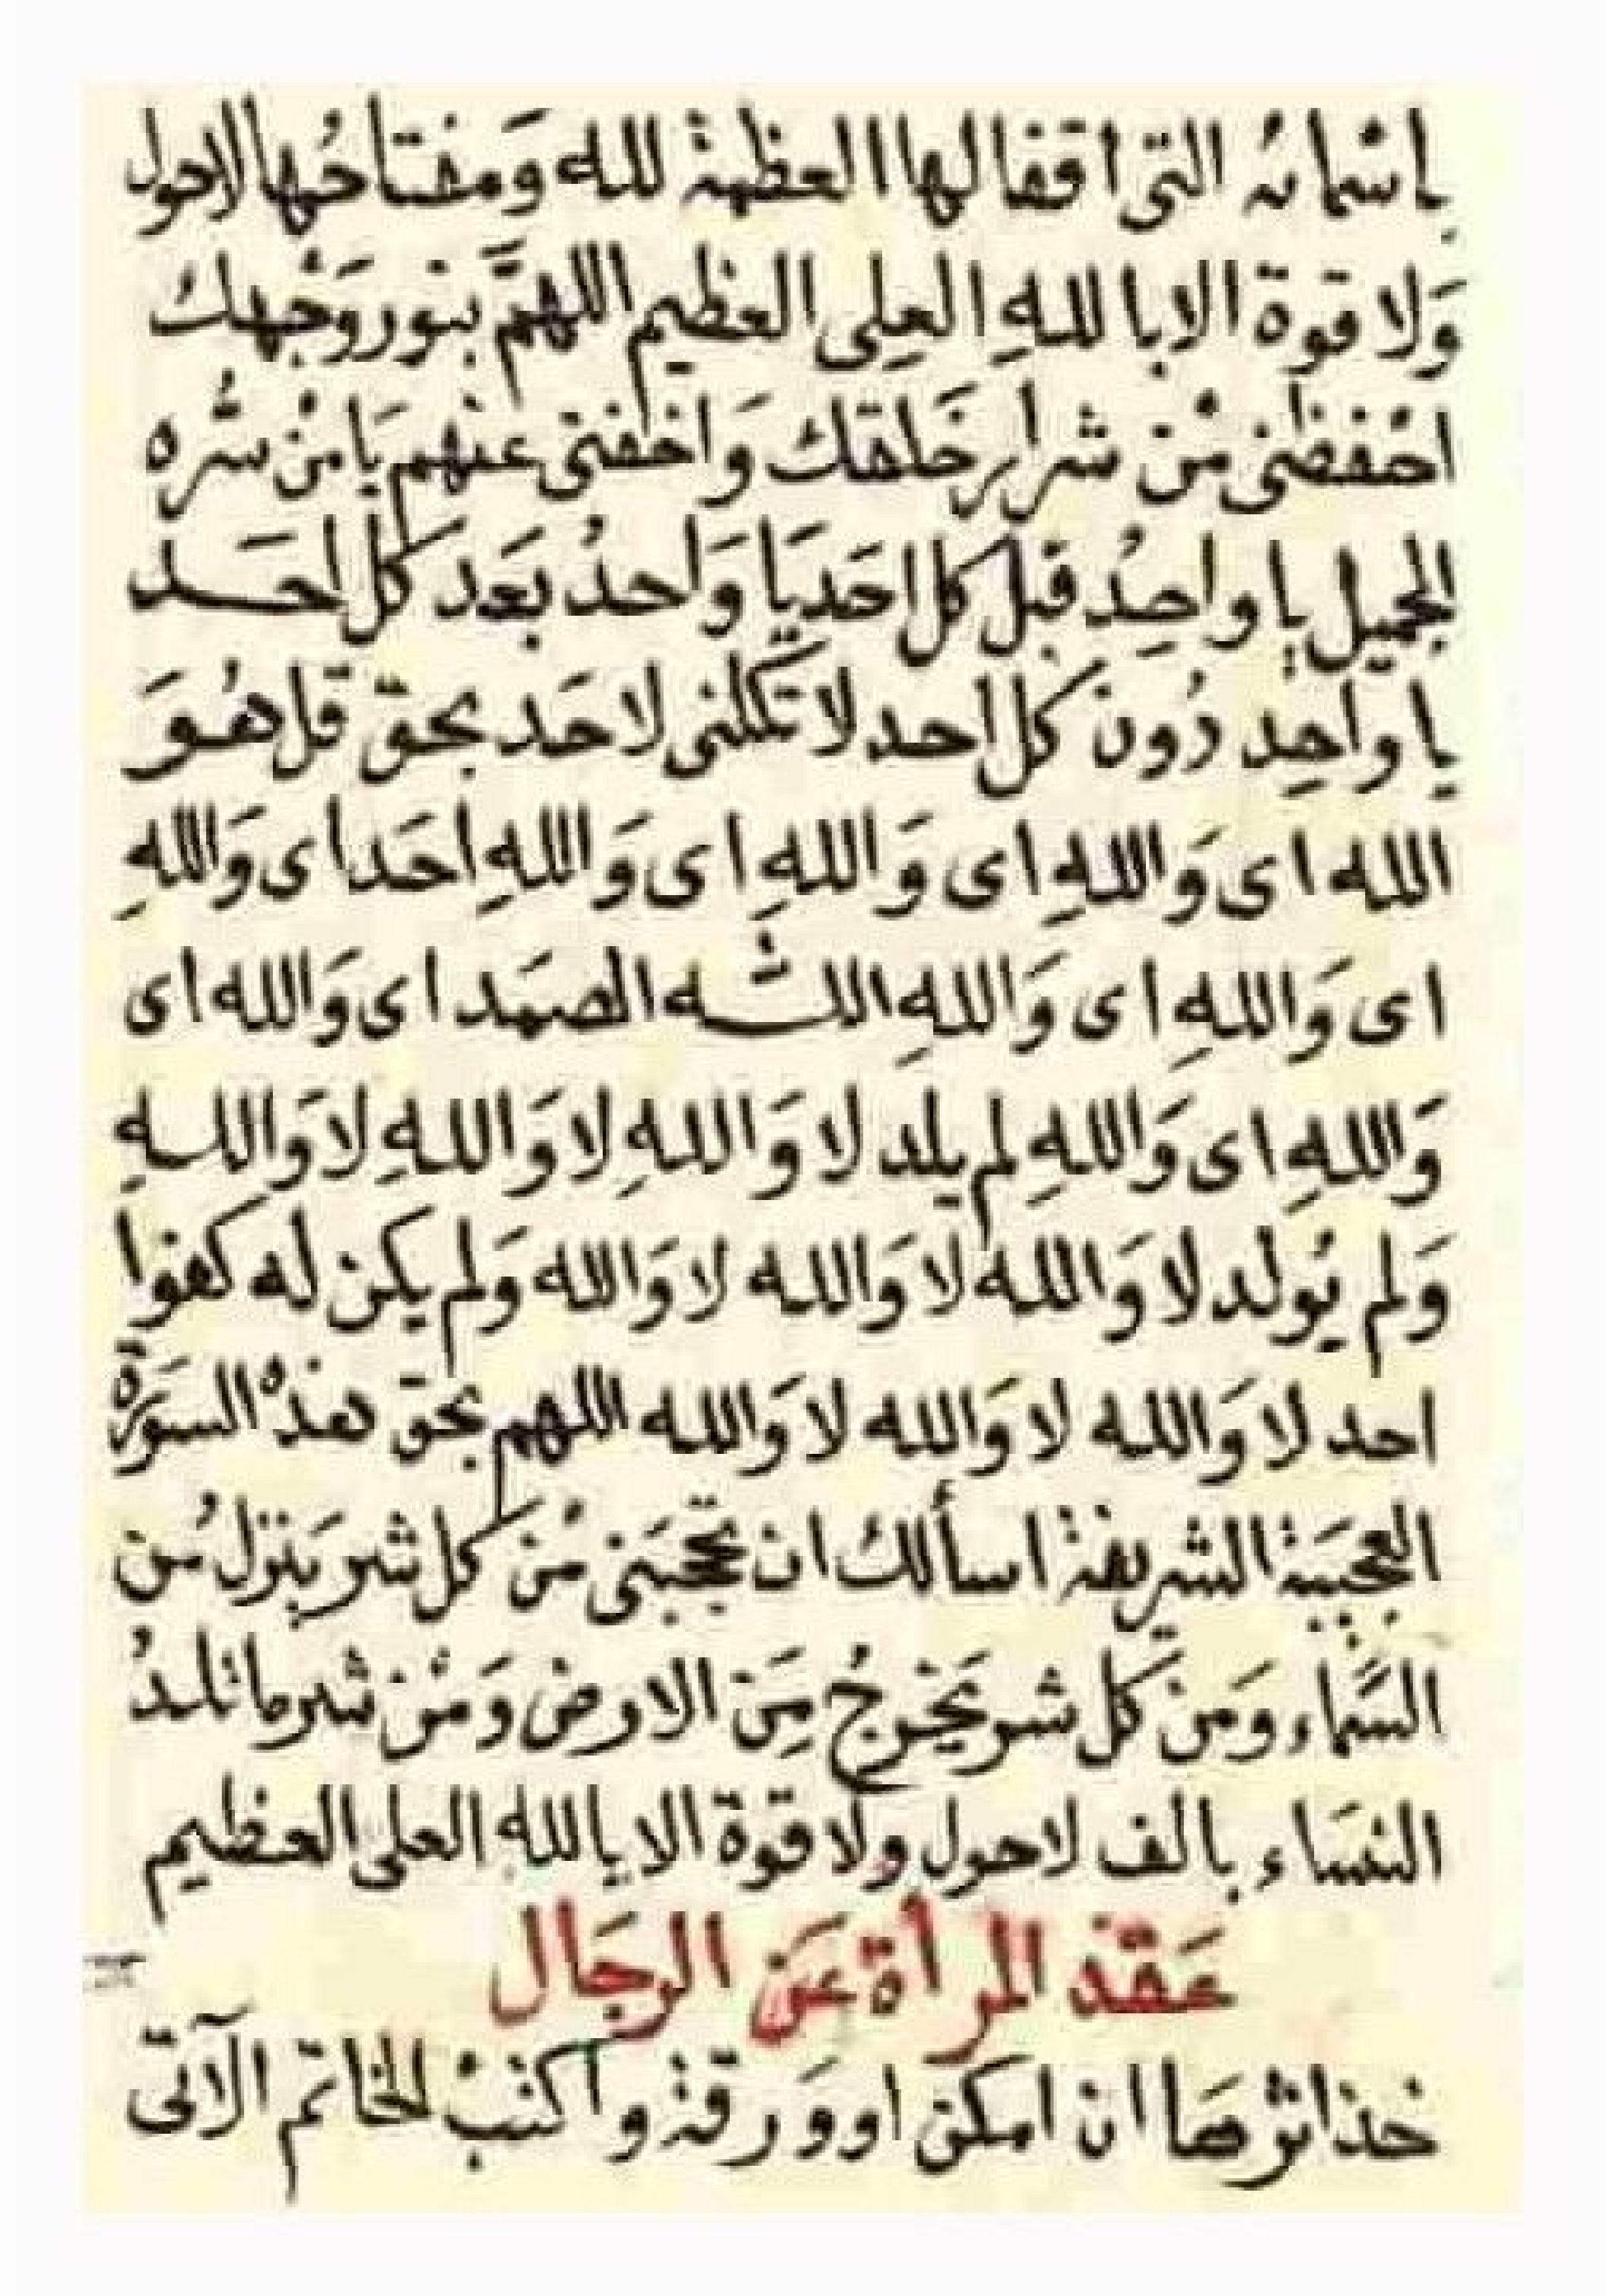 باسمائه التى اقفالها العظمة لله وَمفتاحُها لاحول
وَلا قوة الا باللهِ العلِى العظيم اللهمَّ بنور وَجْهك
احْفظنى مِنْ شرار خَلقك وَاخْفنى عنهم يَا مَنْ سْتره
الجميل يا واحِدُ قبل كل احَد يَا وَاحدُ بَعَد كل احَـــد
يا واحِد دُونَ كل احد لا تكلنى لاحَد بحقّ قل هُـوَ
الله اى وَاللهِ اى وَاللهِ اى وَاللهِ احَد اى وَاللهِ
اى وَاللهِ اى وَاللهِ اللـــه الصمَد اى وَالله اى
وَاللهِ اى وَاللهِ لم يلد لا وَاللهِ لا وَاللهِ لا وَاللـهِ
وَلم يُولد لا وَالله لا وَالله لا وَالله وَلم يكن له كفوا
احد لا وَالله لا وَالله لا وَالله اللهم بحق هذه السورَة
العجَيبة الشريفة اسألك ان تحجبَنى مْنَ كل شر يَنزل مُن
السَّماء وَمن كل شر يَخرجُ مِنَ الارض وَمْن شر ما تلدُ
النسَاء بالف لاحول ولا قوة الا بالله العلى العظيم
عَقد المرأة عَن الرجَال
خذ اثرهَا ان امكن او وَرقة واكتبْ الخاتم الآتى